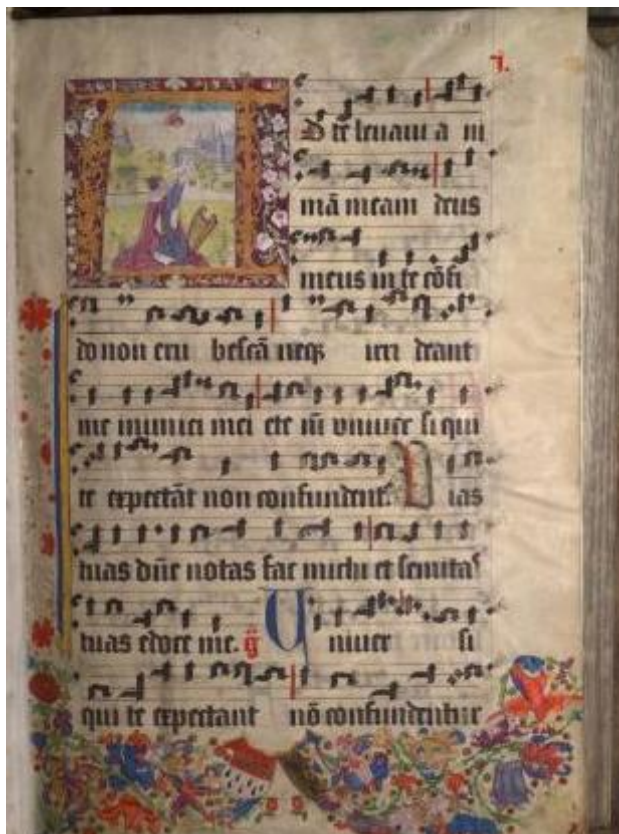 D te leuaui a ni
mā meam deus
meus in te cōfi
do non eru bescā neqz irri deant
me inimici mei ete ni vniuer si qui
te expectāt non confundent. Uias
tuas dn̄e notas fac michi et semitas
tuas edoce me. Uniuer si
qui te expectant nō confundentur